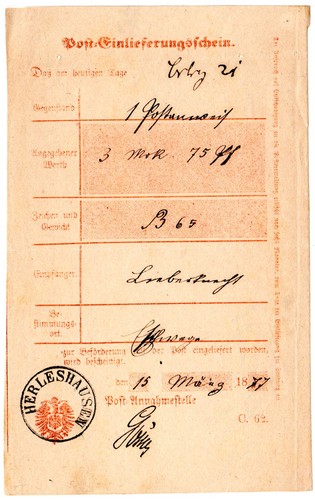 Post-Einlieferungsschein.
Daß am heutigen Tage
Gegenstand
1 Postanweis
Angegebener
Werth
3 Mrk. 75 Pf
Zeichen und
Gewicht
B 65
Empfänger
Lieberknecht
Be-
stimmungs-
ort.
Eschwege
zur Beförderung der Post eingeliefert worden,
wird bescheinigt.
den 15 März 1877
Post-Annahmestelle
C. 62.
HERLESHAUSEN